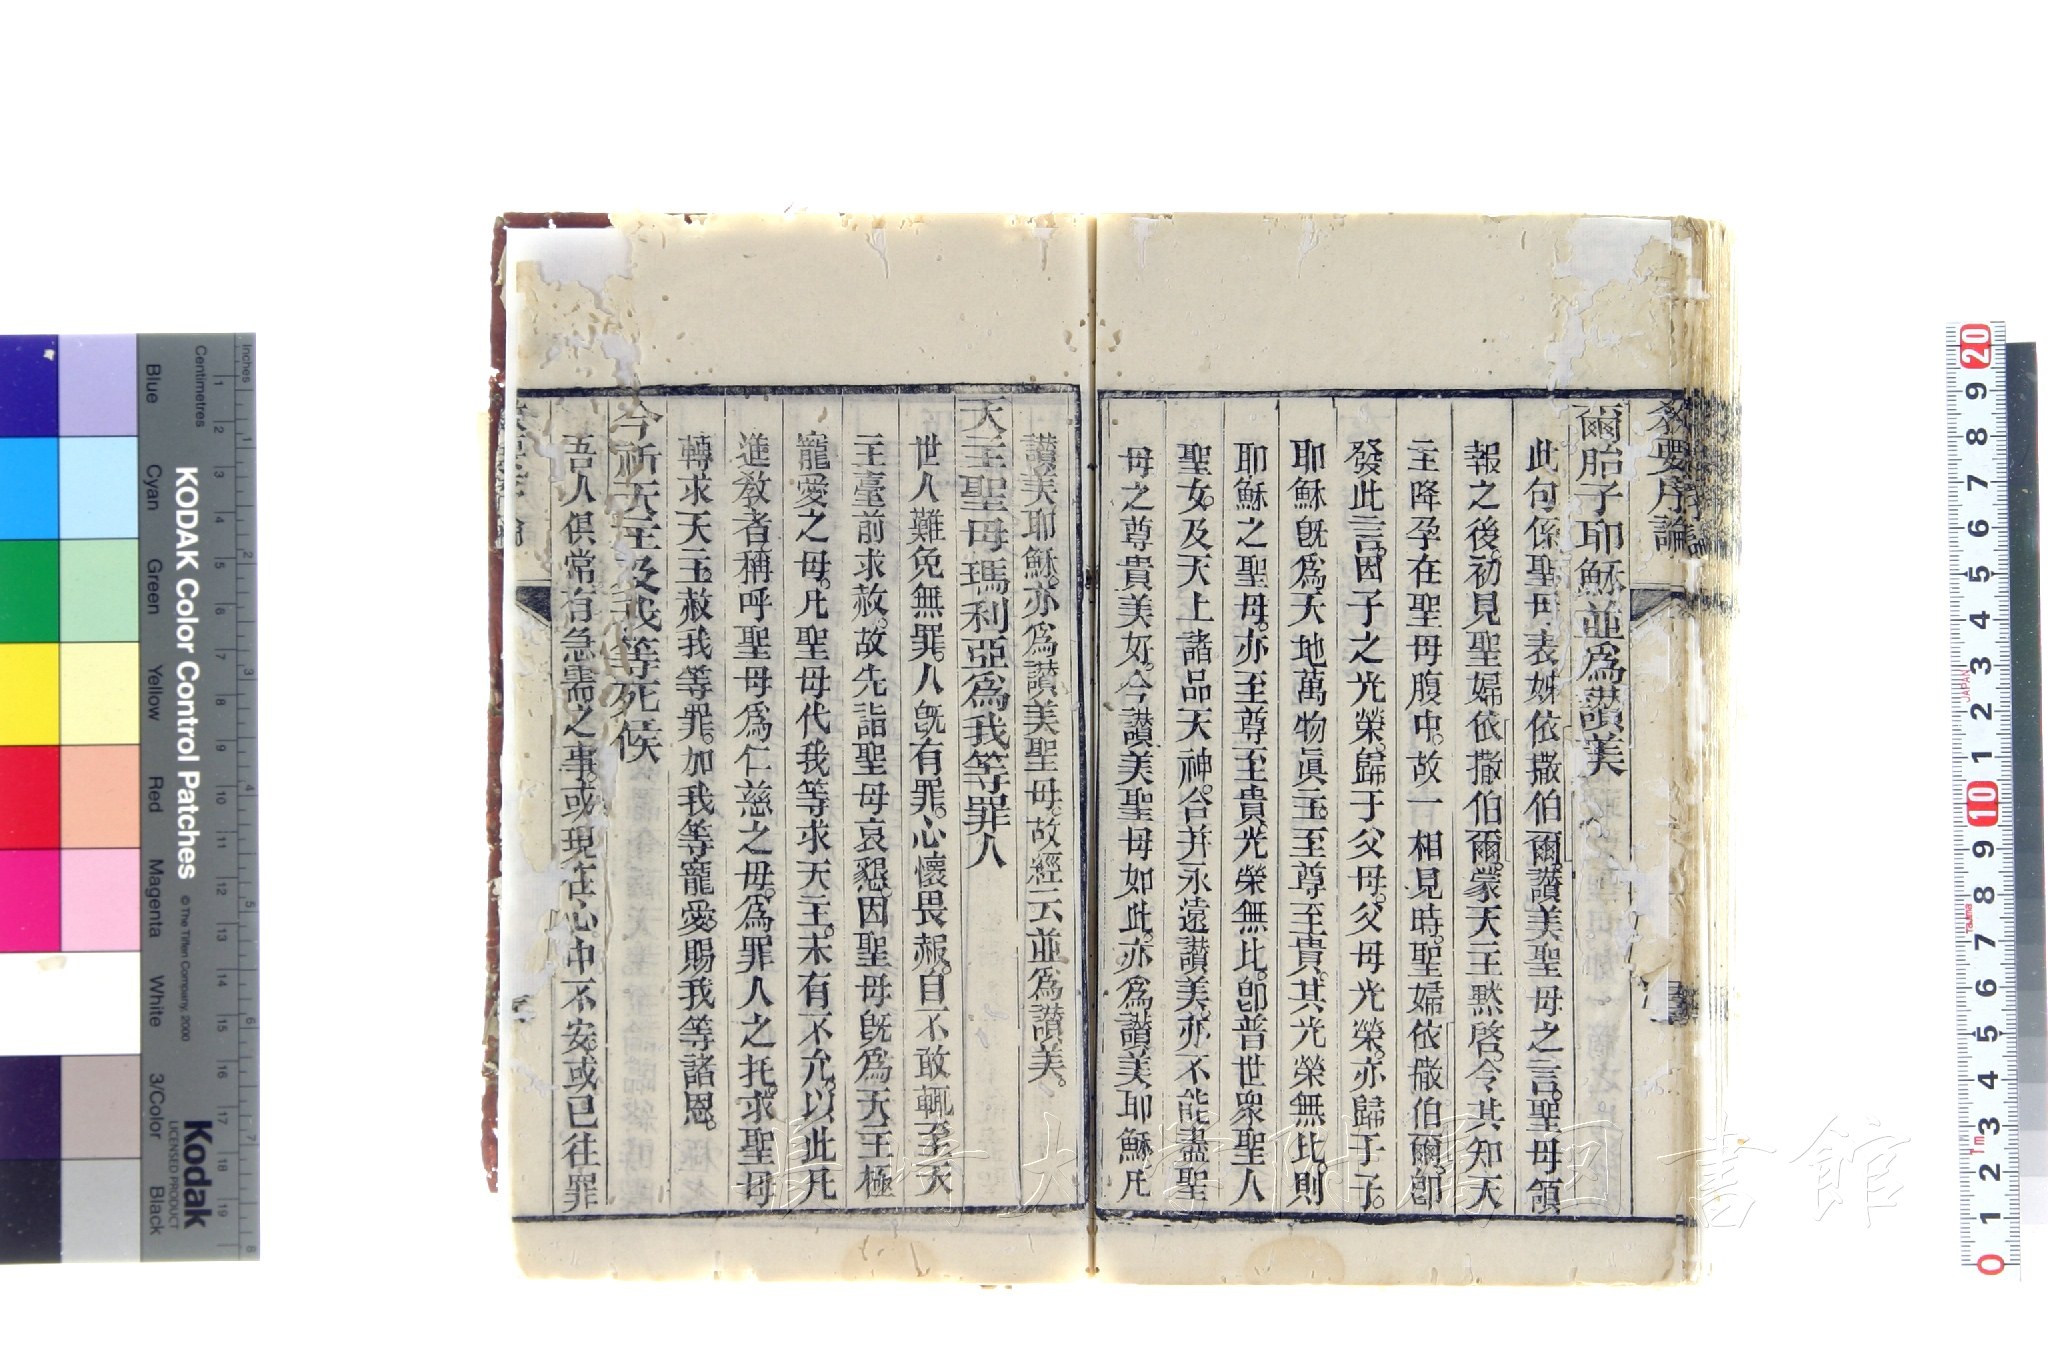 教要序論
爾胎子耶穌並爲讃美
此句係聖母表姊依撒伯爾。讃美聖母之言。聖母領
報之後。初見聖婦依撒伯爾。蒙天主黙啓。令其知天
主降孕在聖母腹中。故一相見時。聖婦依撒伯爾。卽
發此言。因子之光榮。歸于父母。父母光榮。亦歸于子。
耶穌旣爲天地萬物眞主。至尊至貴。其光榮無比。則
耶穌之聖母。亦至尊至貴。光榮無比。卽普世衆聖人
聖女。及天上諸品天神。合并永遠讃美。亦不能盡聖
母之尊貴美好。今讃美聖母如此。亦爲讃美耶穌。凡
讃美耶穌。亦爲讃美聖母。故經云並爲讃美。
天主聖母瑪利亞爲我等罪人
世人難免無罪。人旣有罪。心懷畏赧。自不敢輒至天
主臺前求赦。故先詣聖母哀懇。因聖母旣爲天主極
寵愛之母。凡聖母代我等求天主。未有不允。以此凡
進敎者稱呼聖母爲仁慈之母。爲罪人之托。求聖母
轉求天主。赦我等罪。加我等寵愛。賜我等諸恩。
今祈天主及我等死候
吾人俱常有急需之事。或現在心中不安。或已往罪
KODAK Color Control Patches
© The Tiffen Company, 2000
Kodak
LICENSED PRODUCT
Inches
Centimetres
Blue
Cyan
Green
Yellow
Red
Magenta
White
3/Color
Black
長崎大学附属図書館